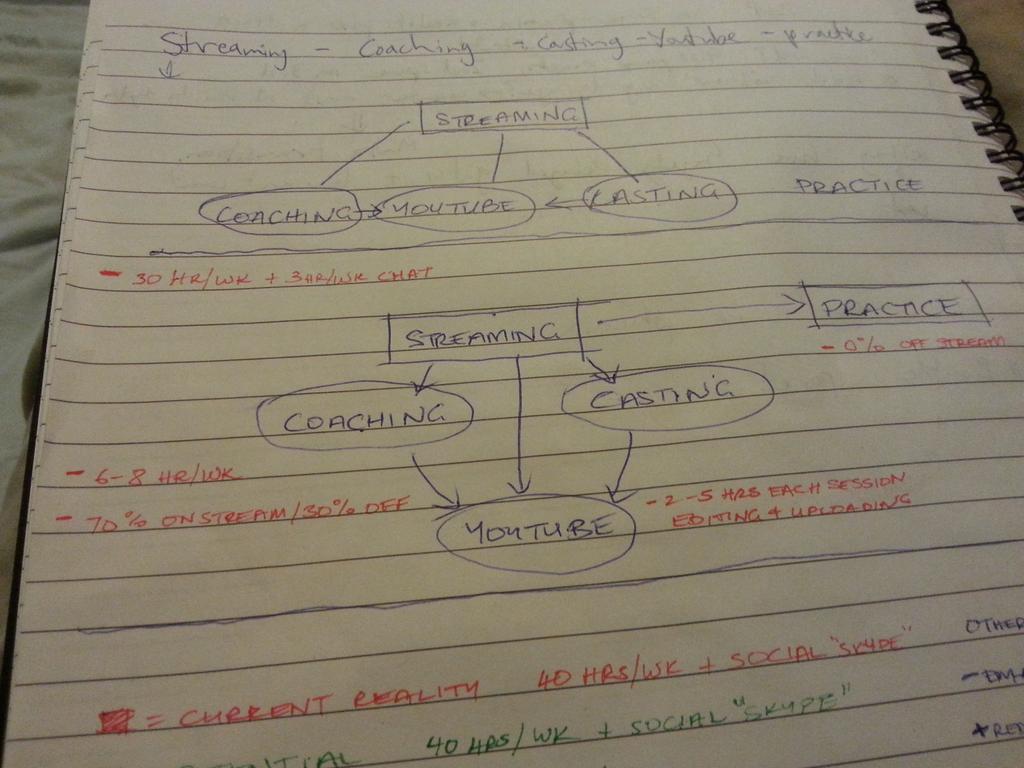 Streaming - Coaching - Casting - Youtube - practice
STREAMING
COACHING YOUTUBE CASTING PRACTICE
- 30 HR/WK + 3HR/WK CHAT
STREAMING PRACTICE
- 0% OFF STREAM
COACHING CASTING
- 6-8 HR/WK
- 70% ONSTREAM/30% OFF
YOUTUBE
- 2-5 HRS EACH SESSION
EDITING + UPLOADING
OTHER
= CURRENT REALITY 40 HRS/WK + SOCIAL "SKYPE"
40 HRS/WK + SOCIAL "SKYPE"